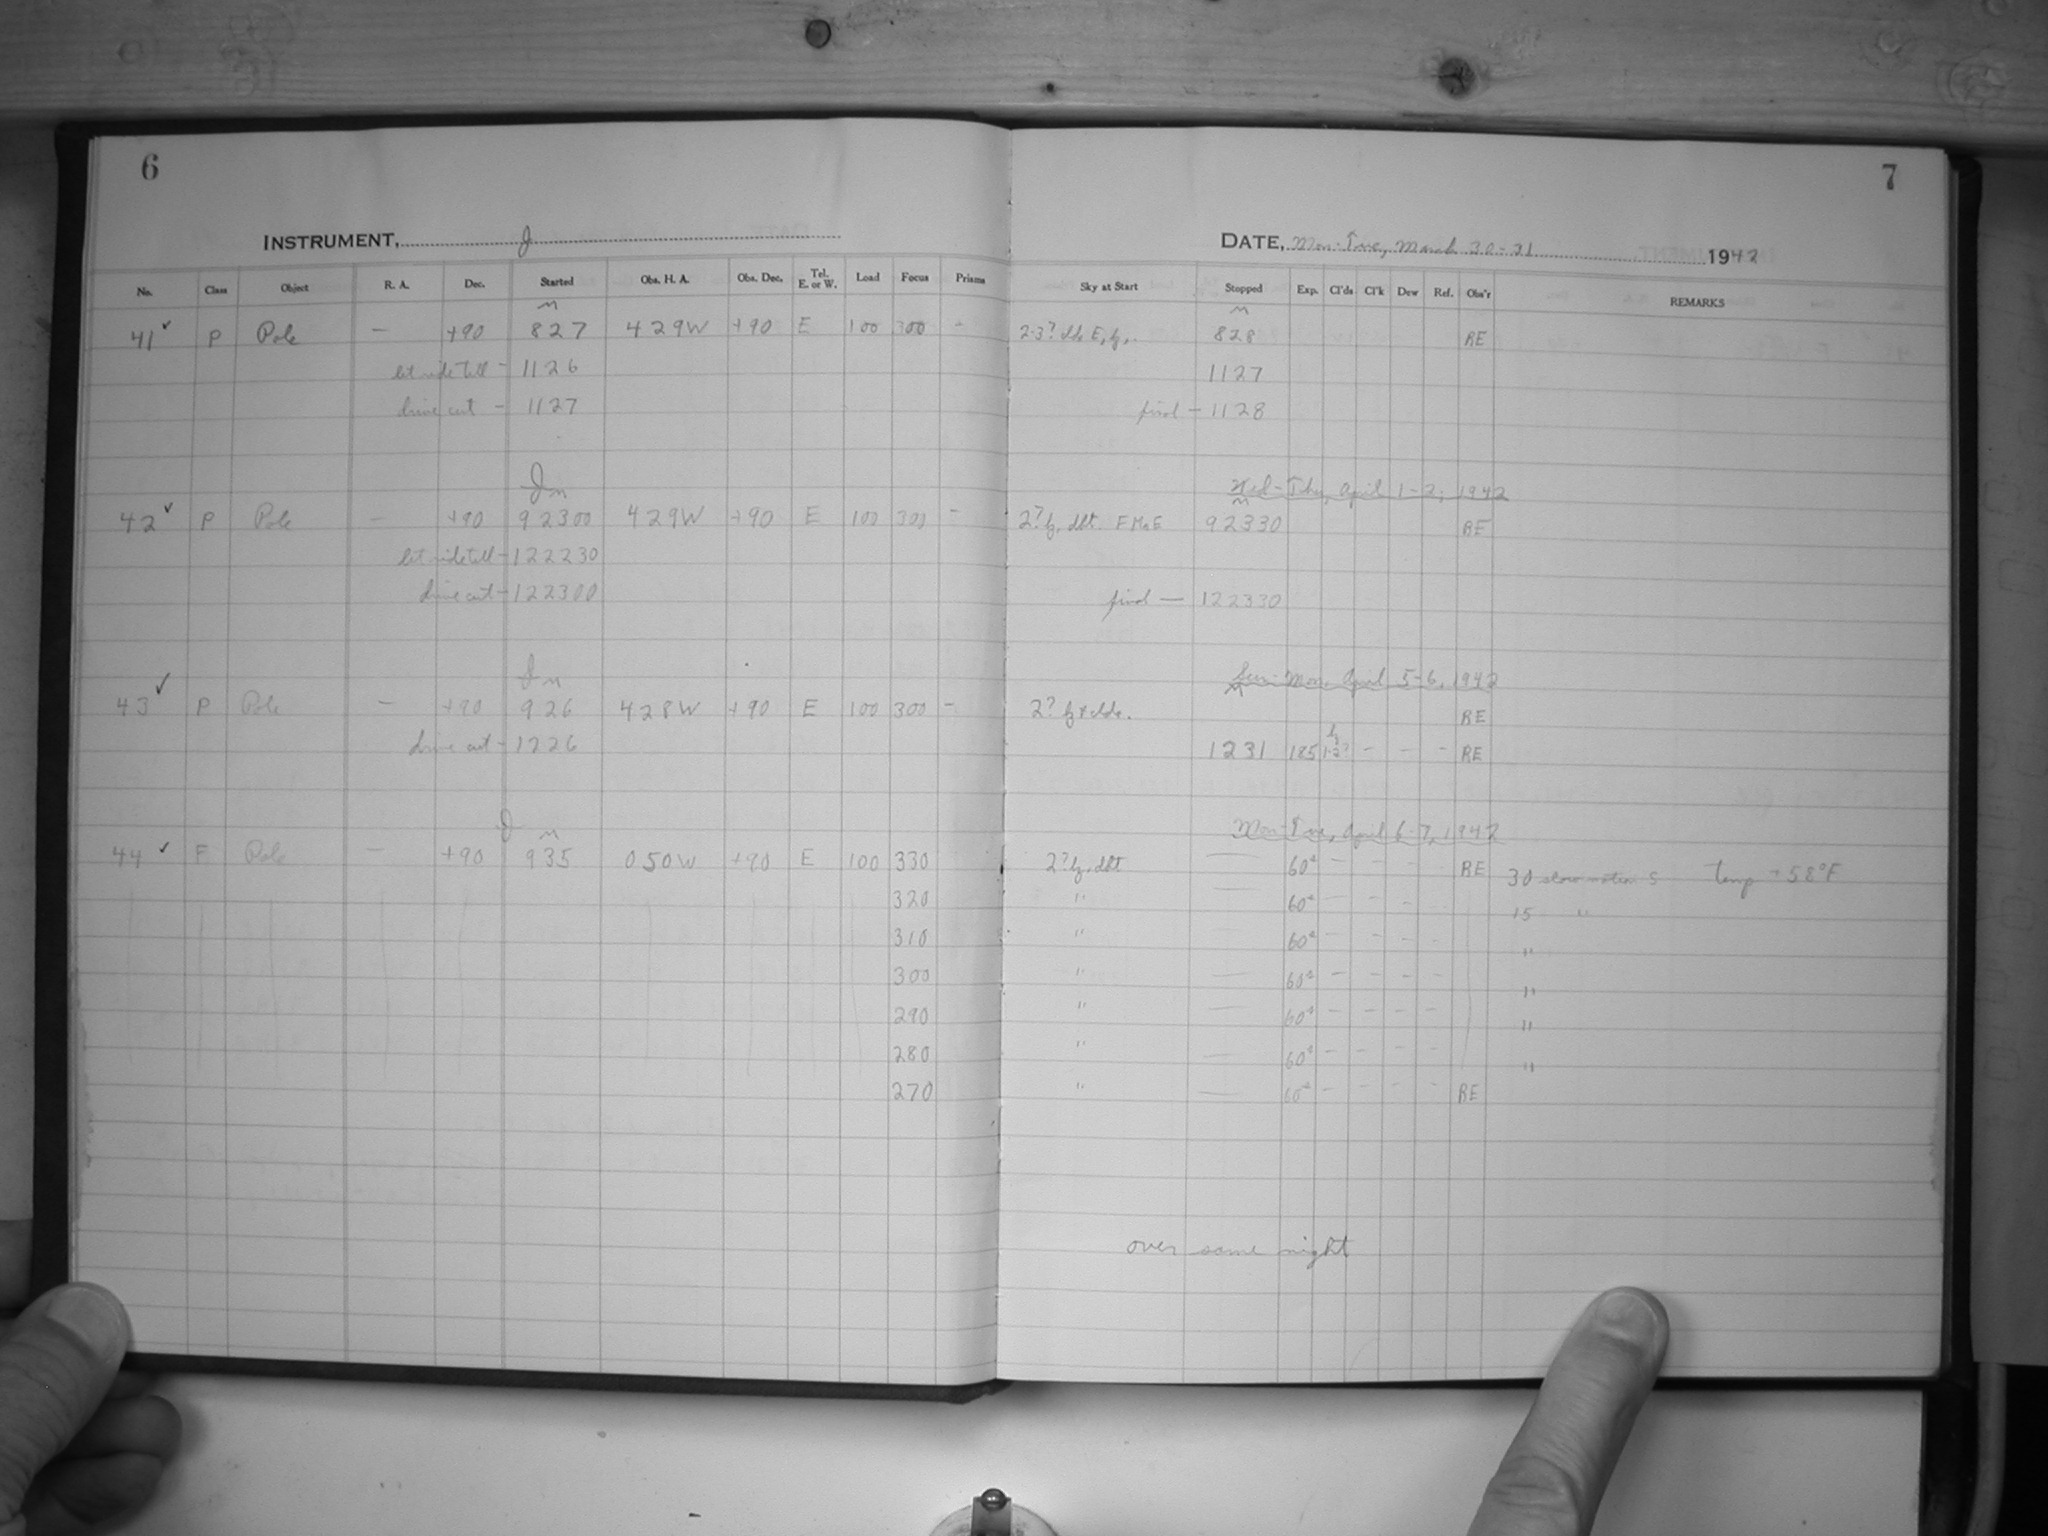 6
7
INSTRUMENT, J
DATE, Mon-Tue, March 30-31 1942
No. Class Object R. A. Dec. Started Obs. H. A. Obs. Dec. Tel. E. or W. Load Focus Prisms Sky at Start Stopped Exp. Cl'ds Cl'k Dew Ref. Obs'r REMARKS
41 ✓ P Pole — +90 827 429W +90 E 100 300 - 2-3? clds E, hz. 828 RE
let ride till - 1126 1127
drive cut - 1127 final - 1128
J Wed-Thu, April 1-2, 1942
42 ✓ P Pole — +90 92300 429W +90 E 100 300 - 2? hz, dbt. 92330 RE
let ride till - 122230
drive cut - 122300 final — 122330
J Sun-Mon, April 5-6, 1942
43 ✓ P Pole — +90 926 428W +90 E 100 300 - 2? hz + clds. RE
drive cut - 1226 1231 185 hz 1-2? - - - RE
J Mon-Tue, April 6-7, 1942
44 ✓ F Pole — +90 935 050W +90 E 100 330 2? hz, dbt — 60s - - - RE 30 slow motion S Temp +58°F
320 " — 60s - - - 15 "
310 " — 60s - - - "
300 " — 60s - - - "
290 " — 60s - - - "
280 " — 60s - - - "
270 " — 60s - - - RE
over same night